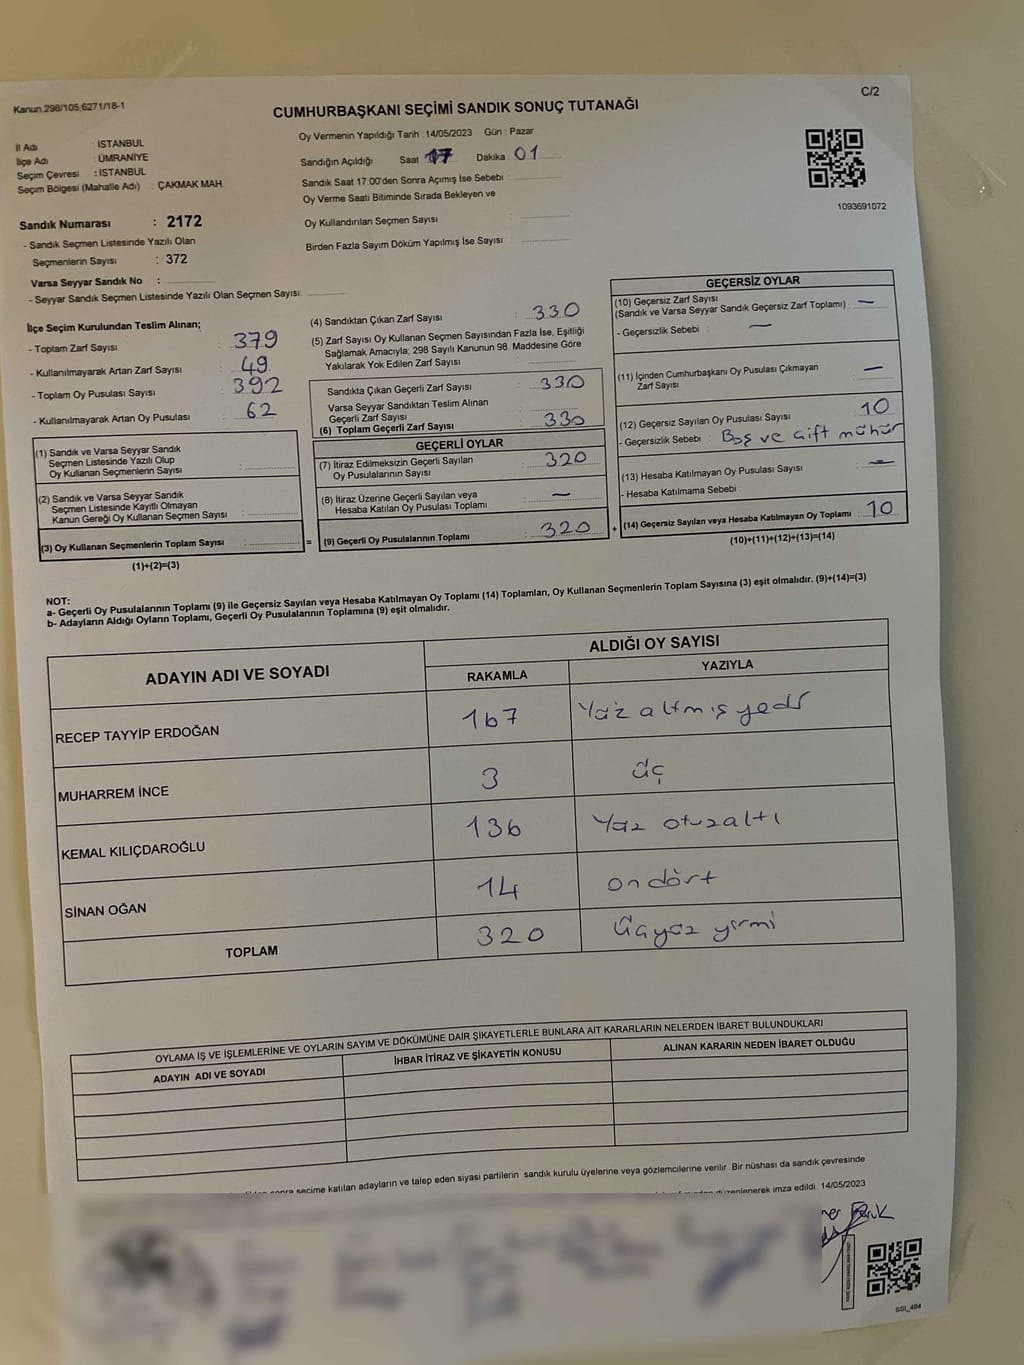 Kanun:298/105;6271/18-1
C/2
CUMHURBAŞKANI SEÇİMİ SANDIK SONUÇ TUTANAĞI
İl Adı : İSTANBUL
İlçe Adı : ÜMRANİYE
Seçim Çevresi : İSTANBUL
Seçim Bölgesi (Mahalle Adı) : ÇAKMAK MAH.
Oy Vermenin Yapıldığı Tarih : 14/05/2023 Gün : Pazar
Sandığın Açıldığı Saat 17 Dakika : 01
Sandık Saat 17:00'den Sonra Açımış İse Sebebi :
Oy Verme Saati Bitiminde Sırada Bekleyen ve
Oy Kullandırılan Seçmen Sayısı :
Birden Fazla Sayım Döküm Yapılmış İse Sayısı :
1093691072
Sandık Numarası : 2172
- Sandık Seçmen Listesinde Yazılı Olan
Seçmenlerin Sayısı : 372
Varsa Seyyar Sandık No :
- Seyyar Sandık Seçmen Listesinde Yazılı Olan Seçmen Sayısı:
İlçe Seçim Kurulundan Teslim Alınan;
- Toplam Zarf Sayısı : 379
- Kullanılmayarak Artan Zarf Sayısı : 49
- Toplam Oy Pusulası Sayısı : 392
- Kullanılmayarak Artan Oy Pusulası : 62
(1) Sandık ve Varsa Seyyar Sandık
Seçmen Listesinde Yazılı Olup
Oy Kullanan Seçmenlerin Sayısı :
(2) Sandık ve Varsa Seyyar Sandık
Seçmen Listesinde Kayıtlı Olmayan
Kanun Gereği Oy Kullanan Seçmen Sayısı :
(3) Oy Kullanan Seçmenlerin Toplam Sayısı :
(1)+(2)=(3)
(4) Sandıktan Çıkan Zarf Sayısı : 330
(5) Zarf Sayısı Oy Kullanan Seçmen Sayısından Fazla İse, Eşitliği
Sağlamak Amacıyla; 298 Sayılı Kanunun 98. Maddesine Göre
Yakılarak Yok Edilen Zarf Sayısı :
Sandıkta Çıkan Geçerli Zarf Sayısı : 330
Varsa Seyyar Sandıktan Teslim Alınan
Geçerli Zarf Sayısı :
(6) Toplam Geçerli Zarf Sayısı : 330
GEÇERLİ OYLAR
(7) İtiraz Edilmeksizin Geçerli Sayılan : 320
Oy Pusulalarının Sayısı
(8) İtiraz Üzerine Geçerli Sayılan veya : —
Hesaba Katılan Oy Pusulası Toplamı
= (9) Geçerli Oy Pusulalarının Toplamı : 320 +
GEÇERSİZ OYLAR
(10) Geçersiz Zarf Sayısı
(Sandık ve Varsa Seyyar Sandık Geçersiz Zarf Toplamı) : —
- Geçersizlik Sebebi : —
(11) İçinden Cumhurbaşkanı Oy Pusulası Çıkmayan
Zarf Sayısı : —
(12) Geçersiz Sayılan Oy Pusulası Sayısı : 10
- Geçersizlik Sebebi : Boş ve Çift mühür
(13) Hesaba Katılmayan Oy Pusulası Sayısı : —
- Hesaba Katılmama Sebebi :
(14) Geçersiz Sayılan veya Hesaba Katılmayan Oy Toplamı : 10
(10)+(11)+(12)+(13)=(14)
NOT:
a- Geçerli Oy Pusulalarının Toplamı (9) ile Geçersiz Sayılan veya Hesaba Katılmayan Oy Toplamı (14) Toplamları, Oy Kullanan Seçmenlerin Toplam Sayısına (3) eşit olmalıdır. (9)+(14)=(3)
b- Adayların Aldığı Oyların Toplamı, Geçerli Oy Pusulalarının Toplamına (9) eşit olmalıdır.
ADAYIN ADI VE SOYADI
ALDIĞI OY SAYISI
RAKAMLA YAZIYLA
RECEP TAYYİP ERDOĞAN 167 Yüz altmış yedi
MUHARREM İNCE 3 üç
KEMAL KILIÇDAROĞLU 136 Yüz otuzaltı
SİNAN OĞAN 14 ondört
TOPLAM 320 üçyüz yirmi
OYLAMA İŞ VE İŞLEMLERİNE VE OYLARIN SAYIM VE DÖKÜMÜNE DAİR ŞİKAYETLERLE BUNLARA AİT KARARLARIN NELERDEN İBARET BULUNDUKLARI
ADAYIN ADI VE SOYADI İHBAR İTİRAZ VE ŞİKAYETİN KONUSU ALINAN KARARIN NEDEN İBARET OLDUĞU
sonra seçime katılan adayların ve talep eden siyasi partilerin sandık kurulu üyelerine veya gözlemcilerine verilir. Bir nüshası da sandık çevresinde
düzenlenerek imza edildi. 14/05/2023
SSI_404